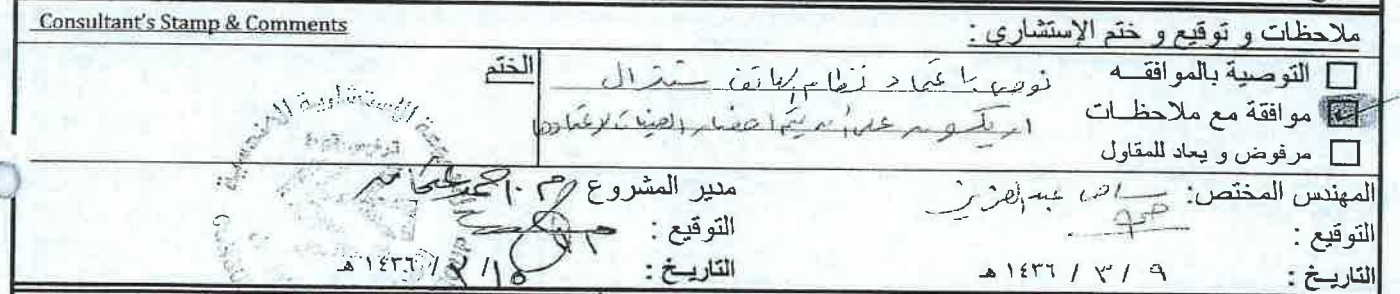 Consultant's Stamp & Comments
ملاحظات و توقيع و ختم الإستشاري :
التوصية بالموافقه
موافقة مع ملاحظات
مرفوض و يعاد للمقاول
نوصي باعتماد نظام الهاتف سنترال
اريكسون على أن يتم احضار العينات لاعتمادها
الختم
المهندس المختص: سامى عبدالعزيز
التوقيع :
التاريخ : ٩ / ٣ / ١٤٣٦ هـ
مدير المشروع م. احمد
التوقيع :
التاريخ : ١٥ / ٣ / ١٤٣٦ هـ